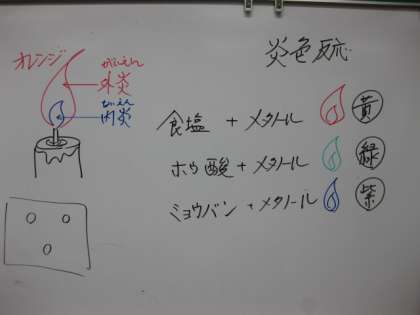 炎色反応
オレンジ
がいえん
外炎
ないえん
内炎
食塩 + メタノール 黄
ホウ酸 + メタノール 緑
ミョウバン + メタノール 紫